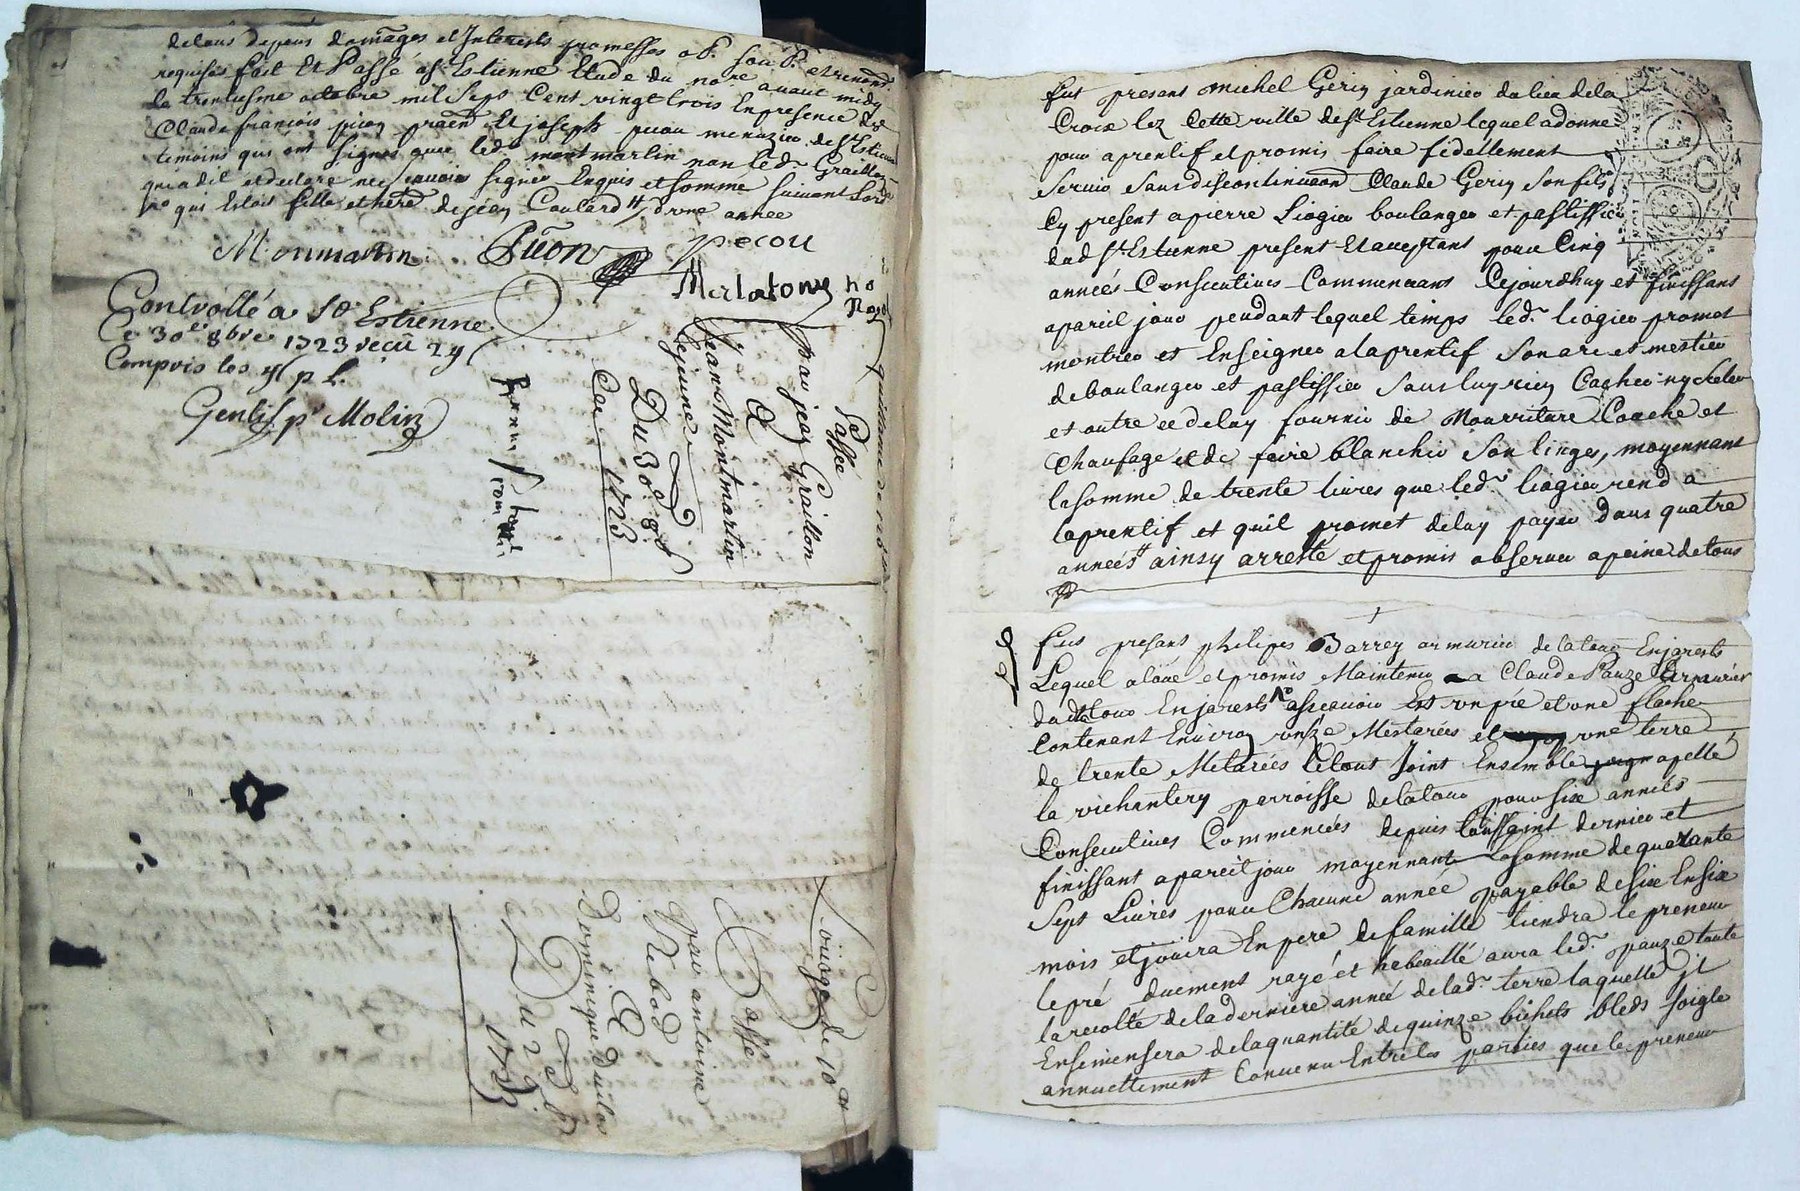 de tous depens domages et Interests promesses ob. sou. et renont.
requises fait et Passé a st Estienne Etude du no.re avant midy
le trentiesme octobre mil Sept Cent vingt trois En presence de
Claude françois picon praen. Et joseph picou menuzier de st Estienne
temoins qui ont signés avec led. montmartin non led. Graillon
qui a dit et declare ne sçavoir signer Enquis et somme suivant Lord.
qui Estoit fille et here. de jean Coulard // d'une année
Monmartin
Picon
pecou
Merlatony no
Royal
Controllé a St Estienne
Ce 30e 8bre 1723 recu
Compris les
Gentil pr Molin
quittance de
Passée
par jean Graillon
A
Jean Montmartin
Lejeune
Du 30e 8bre
1723
Louage de
Passé
par antoine
Rebod
A
Dominique
Du 2e
1723
fut presant michel Gerin jardinier du lieu de la
Croix lez Cette ville de st Estienne lequel a donné
pour aprentif et promis faire fidellement
servir sans discontinuaon Claude Gerin son fils
Cy present a pierre Liogier boulanger et pastissier
dud st Estienne present et aceptant pour Cinq
années Consecutives Commencans Cejourdhuy et finissans
a pareil jour pendant lequel temps led. liogier promet
montrer et Enseigner a laprentif son art et mestier
de boulanger et pastissier sans luy rien Cacher ny Celer
et outre ce de luy fournir de Nourriture Couche et
Chaufage et de faire blanchir son linge, moyennant
la somme de trente livres que led. liogier rend a
laprentif et quil promet de luy payer dans quatre
années // ainsy arresté et promis observer a peine de tous
fut presant philipes Barrey armurier de la tour En jarests
Lequel a loué et promis Maintenir a Claude Pauze Armurier
dud la tour En jarests asscavoir Est un pré et une flache
Contenant Environ unse Mestarées et une terre
de trente Metarées Le tout Joint Ensemble apellé
la richantery parroisse de la tour pour six années
Consecutives Commencées depuis toussaint dernier et
finissant a pareil jour moyennant la somme de quarante
Sept Livres pour Chacune année payable de six En six
mois et jouira En pere de famille tiendra le preneur
le pré duement rayé et aura led. pauze toute
la recolte de la derniere année de lad. terre laquelle jl
Ensemensera de la quantité de quinze bichets bleds soigle
annuellement Convenu Entre les parties que le preneur